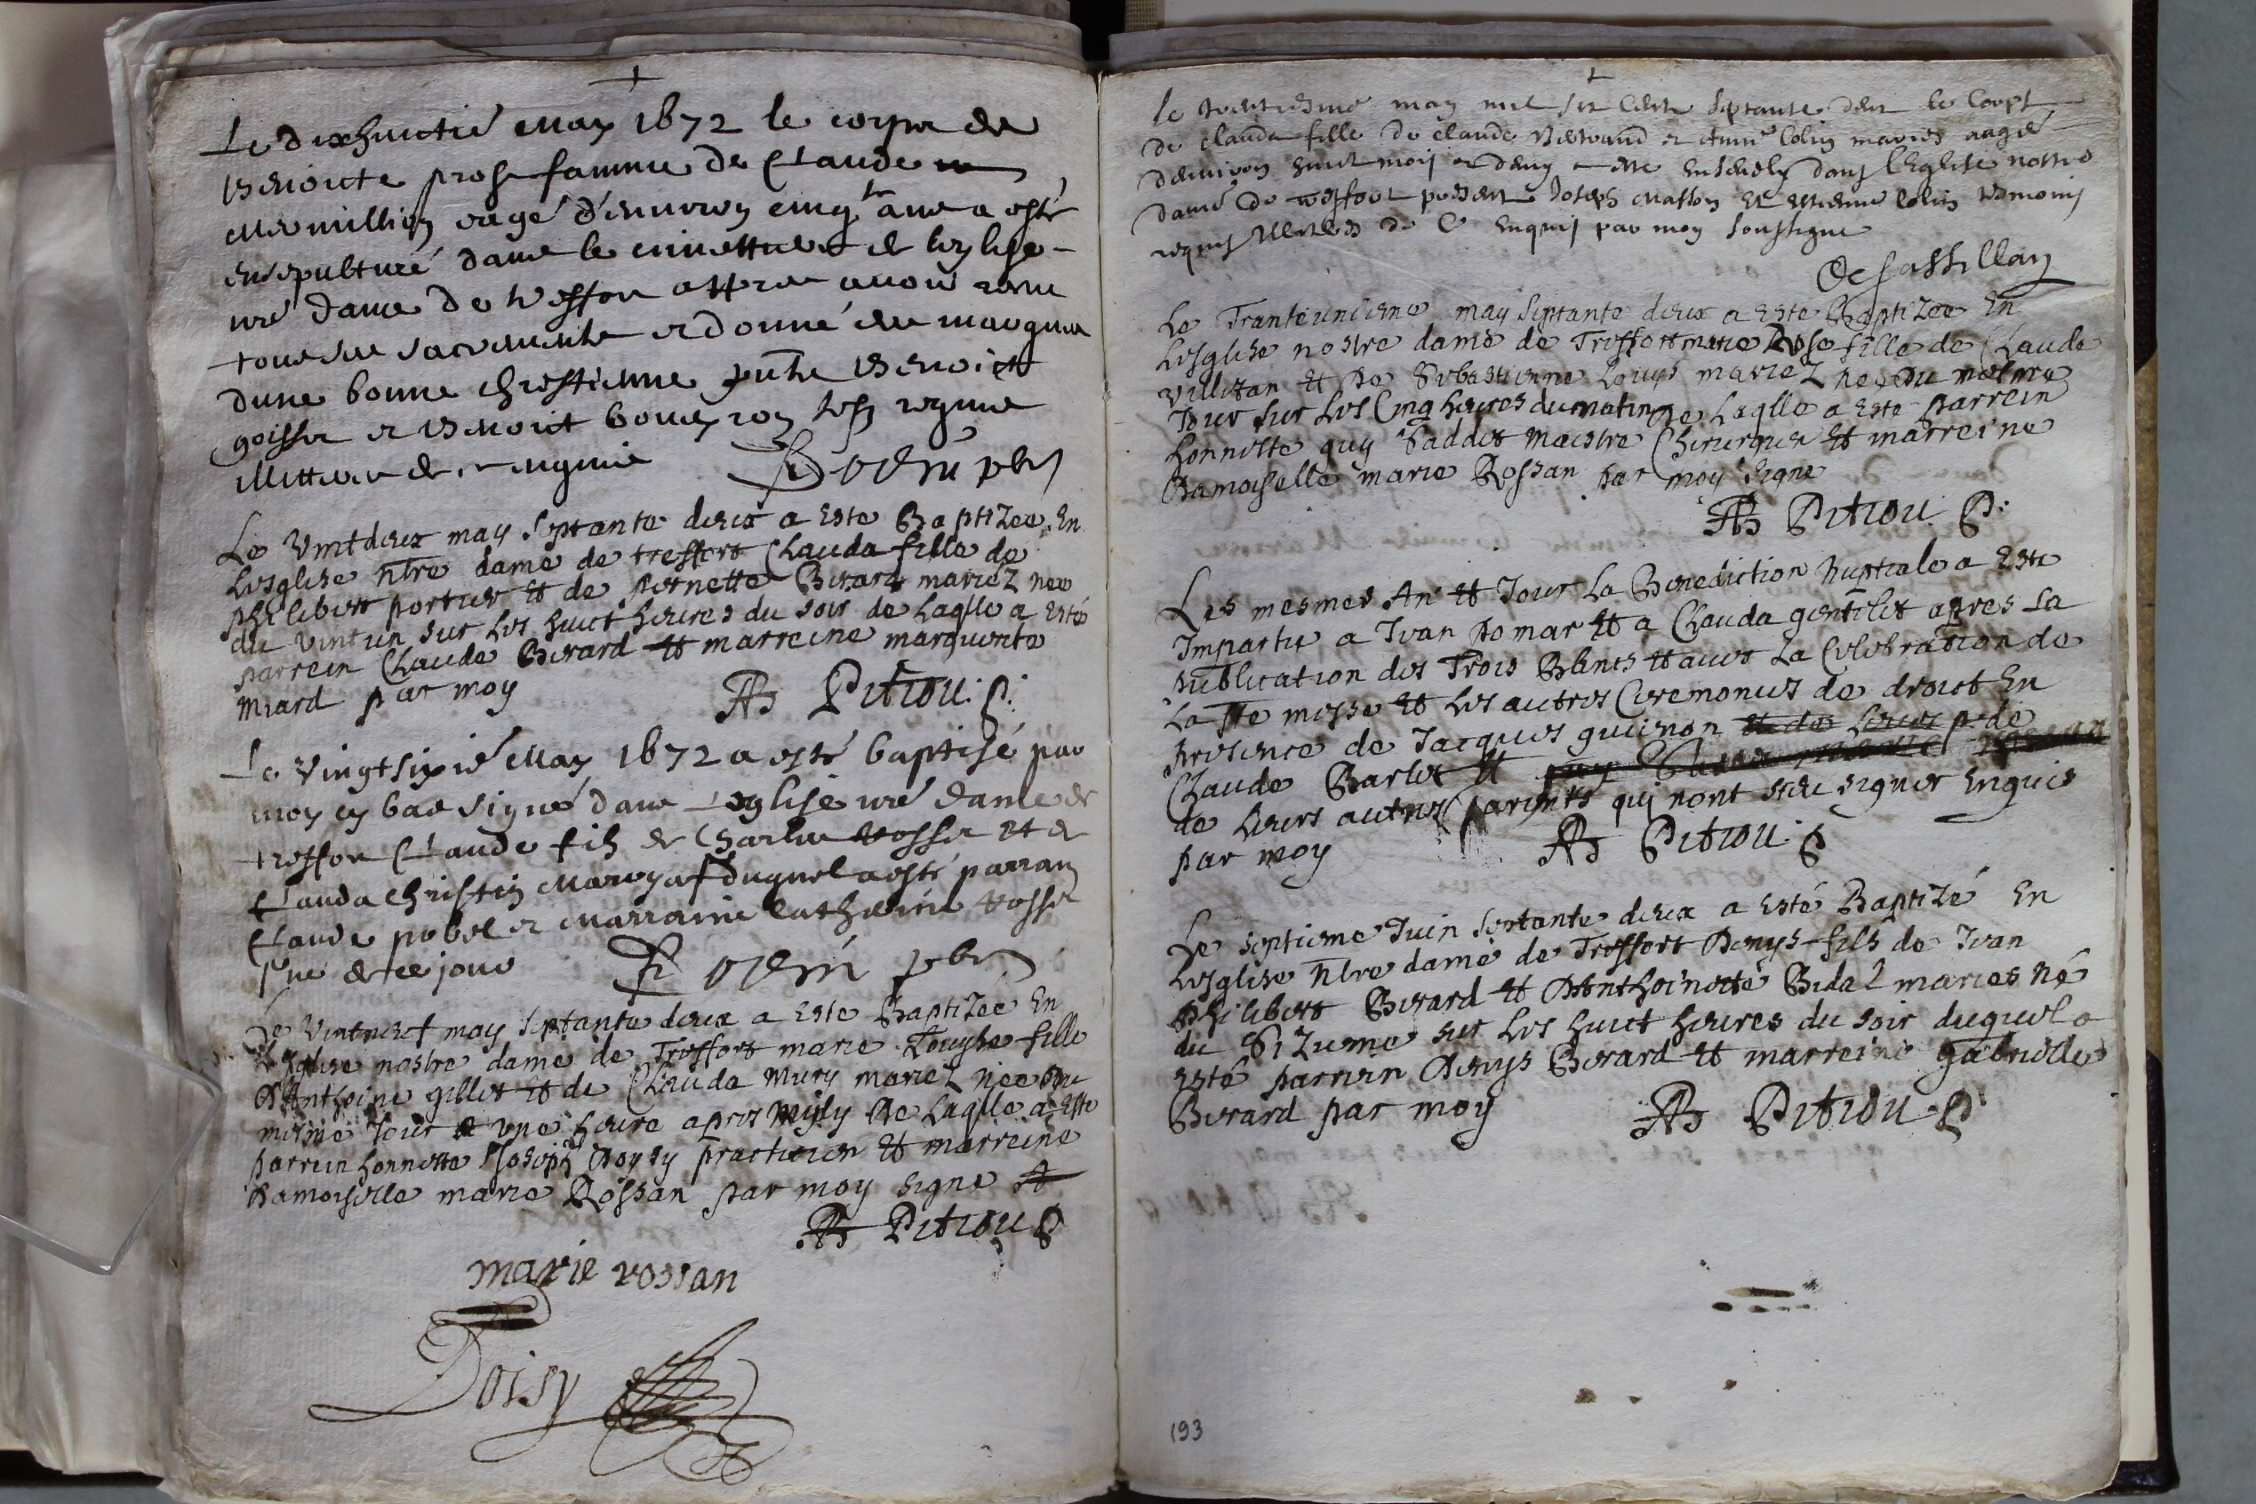 Le dixhuictié May 1672 le corps de
Benoicte prost famme de Claude
Mermillion eagé d'environ cinq.te ans a esté
ensepulturé dans le cimettiere de leglise
nre dame de treffort apres avoir receu
tous ses sacrements et donné des marques
dune bonne chrestienne pnts Benoict
goiffon et Benoict boueyron tesm requis
illitteres de ce enquis
Le Vintdeux may septante deux a Este Baptizee En
Lesglise ntre dame de treffort Clauda fille de
philibert portier et de pernette Berard mariez nee
du vintun sur Les huict heures du soir de Laqlle a Esté
parrein Claude Berard et marreine marguerite
miard par moy
Pitiou P.
Le Vingtsixié May 1672 a esté baptisé par
moy cy bas signé dans Leglise nre dame de
treffort Claude fils de Charles vosse et de
Clauda Christin Maryes duquel a esté parrain
Claude pobel et Marraine Catherine vosse
ne de ce jour
Le Vintneuf may septante deux a Este Baptizee En
Lesglise nostre dame de Treffort marie Louyse fille
D'Anthoine gillet et de Clauda mury mariez nee Du
mesme Jour a une heure apres mydy De Laqlle a Este
parrein honneste Joseph Doysy practicien et marreine
Damoiselle marie Rossan par moy signe
Pitiou P
marie rossan
Doisy
le trentiesme may mil six cents septante deux le corps
de clauda fille de claude Bertrand et Anne Colin mariés aagée
denviron huict mois a esté ensevely dans lEglise nostre
dame de treffort present Joseph Masson et estienne Colin tesmoins
requis illiteres de ce Enquis par moy soussigne
De Castillan
Le Tranteuniene may septante deux a Este Baptizee En
Lesglise nostre dame de Treffort marie Rose fille de Claude
Villizan et De Sebastienne Louys mariez nee Du mesme
Jour sur Les Cinq heures du matin De Laqlle a Este parrein
honneste guy Taddet maistre Chirurgien et marreine
Damoiselle marie Rossan par moy signe
Pitiou P.
Les mesmes An et Jour La Benediction Nuptiale a Este
Impartie a Jean Pomar et a Clauda gentilet apres La
publication des Trois Bancs et avec La Celebration de
La ste messe et Les autres Ceremonies de droict En
presence de Jacques guienon et de Leurs p. de
Claude Barlet et
de Leurs autres parents qui nont sceu signer Enquis
par moy
Pitiou P
Le septieme Juin septante deux a Esté Baptizé En
Lesglise ntre dame de Treffort Denys fils de Jean
philibert Berard et D'Anthoinette Bidal maries né
du Sizieme sur Les huict heures du soir duquel a
Esté parrein Denys Berard et marreine gabrielle
Berard par moy
Pitiou P
193